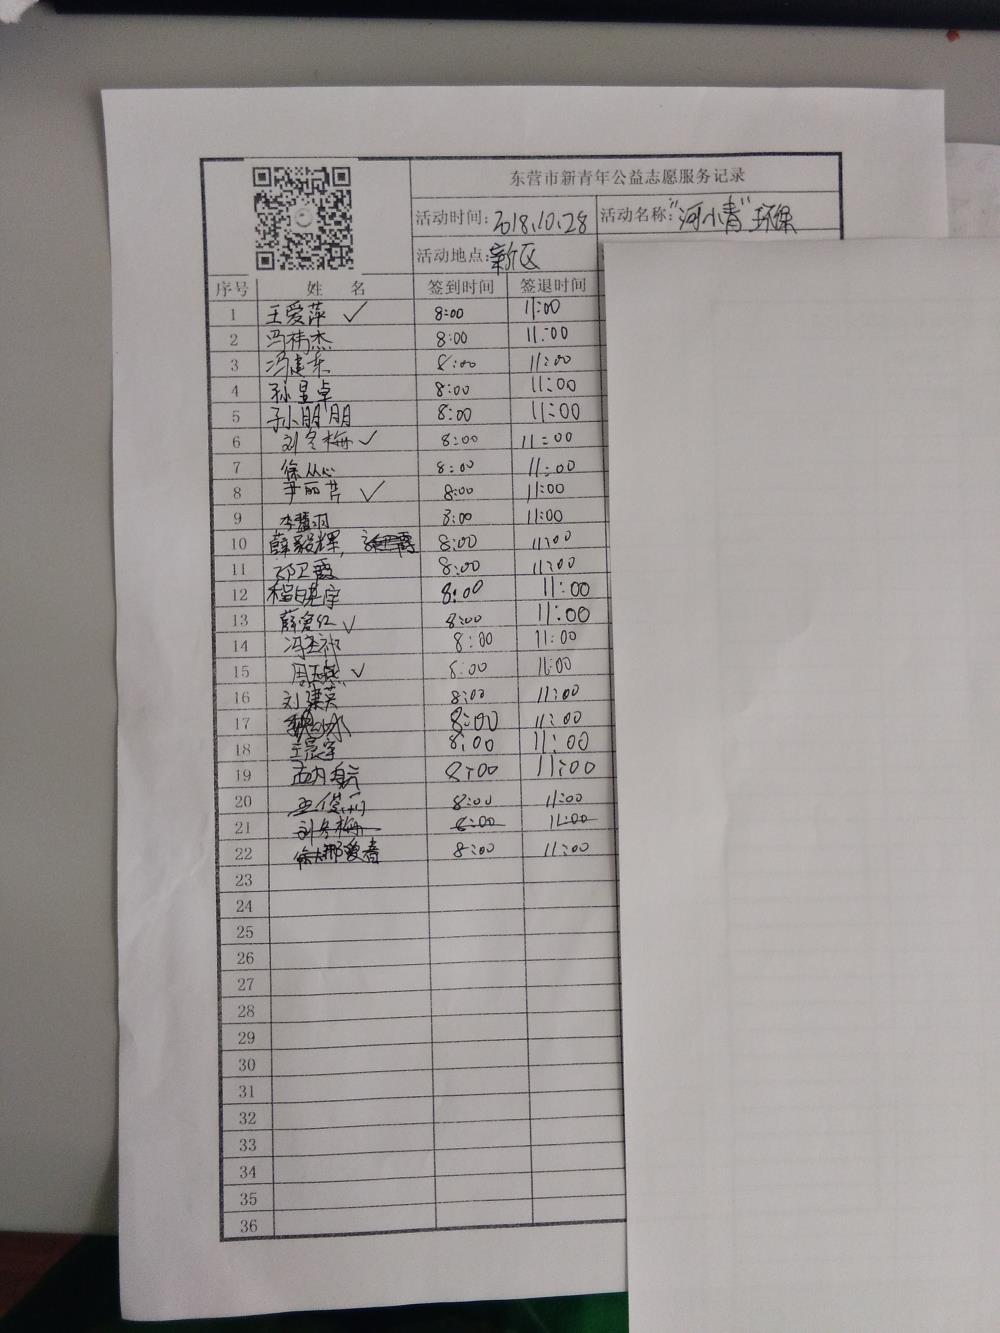 东营市新青年公益志愿服务记录
活动时间:2018.10.28 活动名称:"河小青"环保
活动地点:新区
序号 姓 名 签到时间 签退时间
1 王爱萍 ✓ 8:00 11:00
2 冯祎杰 8:00 11:00
3 冯建东 8:00 11:00
4 孙昱卓 8:00 11:00
5 于小朋朋 8:00 11:00
6 刘冬梅 ✓ 8:00 11:00
7 徐从心 8:00 11:00
8 尹丽芹 ✓ 8:00 11:00
9 李慧羽 8:00 11:00
10 薛毅辉, 8:00 11:00
11 邓卫霞 8:00 11:00
12 8:00 11:00
13 ✓ 8:00 11:00
14 8:00 11:00
15 周玉燕 ✓ 8:00 11:00
16 刘建英 8:00 11:00
17 8:00 11:00
18 王宸宇 8:00 11:00
19 8:00 11:00
20 8:00 11:00
21 刘冬梅 8:00 11:00
22 8:00 11:00
23
24
25
26
27
28
29
30
31
32
33
34
35
36